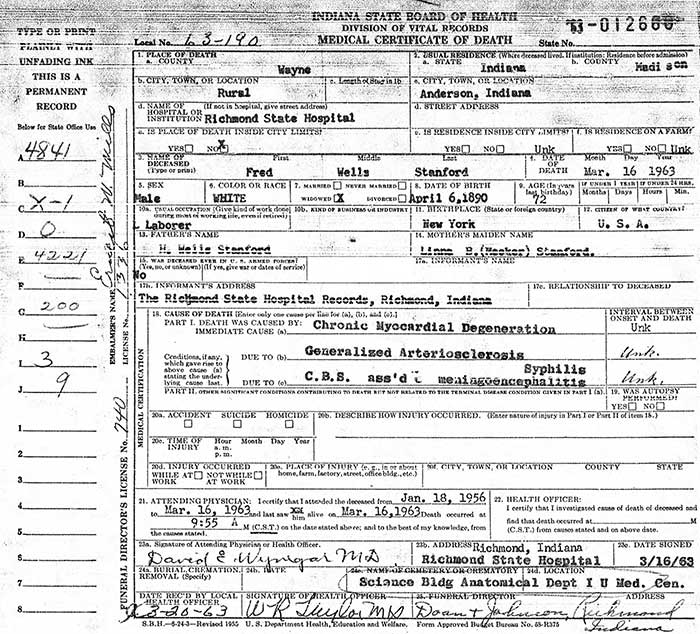 INDIANA STATE BOARD OF HEALTH
DIVISION OF VITAL RECORDS
MEDICAL CERTIFICATE OF DEATH
63-012660
TYPE OR PRINT
PLAINLY WITH
UNFADING INK
THIS IS A
PERMANENT
RECORD
Local No. 63-190
State No.
1. PLACE OF DEATH
a. COUNTY
Wayne
2. USUAL RESIDENCE (Where deceased lived. If institution: Residence before admission)
a. STATE Indiana b. COUNTY Madison
b. CITY, TOWN, OR LOCATION
Rural
c. Length of Stay in 1b
c. CITY, TOWN, OR LOCATION
Anderson, Indiana
d. NAME OF HOSPITAL OR INSTITUTION (If not in hospital, give street address)
Richmond State Hospital
d. STREET ADDRESS
e. IS PLACE OF DEATH INSIDE CITY LIMITS?
YES NO X
e. IS RESIDENCE INSIDE CITY LIMITS?
Unk
f. IS RESIDENCE ON A FARM?
YES NO Unk
3. NAME OF DECEASED (Type or print)
First Middle Last
Fred Wells Stanford
4. DATE OF DEATH
Month Day Year
Mar. 16 1963
5. SEX
Male
6. COLOR OR RACE
WHITE
7. MARRIED NEVER MARRIED
WIDOWED X DIVORCED
8. DATE OF BIRTH
April 6, 1890
9. AGE (In years last birthday)
72
IF UNDER 1 YEAR IF UNDER 24 HRS.
Months Days Hours Min.
10a. USUAL OCCUPATION (Give kind of work done during most of working life, even if retired)
Laborer
10b. KIND OF BUSINESS OR INDUSTRY
11. BIRTHPLACE (State or foreign country)
New York
12. CITIZEN OF WHAT COUNTRY?
U. S. A.
13. FATHER'S NAME
H. Wells Stanford
14. MOTHER'S MAIDEN NAME
B. Stanford.
15. WAS DECEASED EVER IN U. S. ARMED FORCES?
(Yes, no, or unknown) (If yes, give war or dates of service)
No
17a. INFORMANT'S NAME
17b. INFORMANT'S ADDRESS
The Richmond State Hospital Records, Richmond, Indiana
17c. RELATIONSHIP TO DECEASED
18. CAUSE OF DEATH [Enter only one cause per line for (a), (b), and (c).]
PART I. DEATH WAS CAUSED BY:
IMMEDIATE CAUSE (a) Chronic Myocardial Degeneration
INTERVAL BETWEEN ONSET AND DEATH
Unk
Conditions, if any, which gave rise to above cause (a) stating the underlying cause last.
DUE TO (b) Generalized Arteriosclerosis
Unk.
Syphilis
DUE TO (c) C.B.S. ass'd meningoencephalitis
Unk.
PART II. OTHER SIGNIFICANT CONDITIONS CONTRIBUTING TO DEATH BUT NOT RELATED TO THE TERMINAL DISEASE CONDITION GIVEN IN PART I (a).
19. WAS AUTOPSY PERFORMED?
YES NO
MEDICAL CERTIFICATION
20a. ACCIDENT SUICIDE HOMICIDE
20b. DESCRIBE HOW INJURY OCCURRED. (Enter nature of injury in Part I or Part II of item 18.)
20c. TIME OF INJURY
Hour Month Day Year
a. m.
p. m.
20d. INJURY OCCURRED
WHILE AT WORK NOT WHILE AT WORK
20e. PLACE OF INJURY (e. g., in or about home, farm, factory, street, office bldg., etc.)
20f. CITY, TOWN, OR LOCATION COUNTY STATE
21. ATTENDING PHYSICIAN: I certify that I attended the deceased from Jan. 18, 1956
to Mar. 16, 1963 and last saw him alive on Mar. 16, 1963 Death occurred at
9:55 A M (C.S.T.) on the date stated above; and to the best of my knowledge, from the causes stated.
22. HEALTH OFFICER:
I certify that I investigated cause of death of deceased and
find that death occurred at M
(C.S.T.) from causes stated and on above date.
23a. Signature of Attending Physician or Health Officer.
David E. Wynegar MD
23b. ADDRESS Richmond, Indiana
Richmond State Hospital
23c. DATE SIGNED
3/16/63
24a. BURIAL, CREMATION, REMOVAL (Specify)
24b. DATE
24c. NAME OF CEMETERY OR CREMATORY
24d. LOCATION
Science Bldg Anatomical Dept I U Med. Cen.
DATE REC'D BY LOCAL HEALTH OFFICER
3-20-63
SIGNATURE OF HEALTH OFFICER
W R Taylor MD
25. FUNERAL DIRECTOR
Doan & Johnson,
ADDRESS
Richmond
Indiana
S.B.H.—6-24-3—Revised 1955 U. S. Department Health, Education and Welfare. Form Approved Budget Bureau No. 68-R375
Below for State Office Use
A 4841
B
C X-1
D 0
E 4221
F
G 200
H
I 3
J 9
1
2
3
4
5
6
7
8
EMBALMER'S NAME Ernest M. Mills
LICENSE No. 1336
FUNERAL DIRECTOR'S LICENSE No. 740